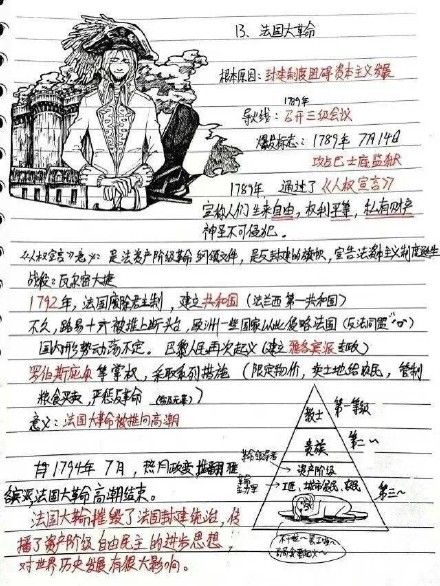 13、法国大革命
根本原因：封建制度阻碍资本主义发展
1789年
导火线：召开三级会议
爆发标志：1789年7月14日
攻占巴士底监狱
1789年，通过了《人权宣言》
宣称人们生来自由，权利平等，私有财产
神圣不可侵犯。
《人权宣言》意义：是法资产阶级革命纲领文件，是反封建的旗帜，宣告法资本主义制度诞生
战役：瓦尔密大捷
1792年，法国废除君主制，建立共和国（法兰西第一共和国）
不久，路易十六被推上断头台，欧洲一些国家以此侵略法国（反法同盟"
国内形势动荡不定。巴黎人民再次起义（建立雅各宾派专政）
罗伯斯庇尔等掌权，采取系列措施（限定物价，卖土地给农民，管制
粮食买卖，严惩反革命
意义：法国大革命被推向高潮
1794年7月，热月政变推翻雅
缤派法国大革命高潮结束。
法国大革命摧毁了法国封建统治，传
播了资产阶级自由民主的进步思想，
对世界历史发展有很大影响。
教士 第一等级
贵族 第二～
革命领导者 → 资产阶级
革命主力军 → 工匠、城市平民、农民 第三～